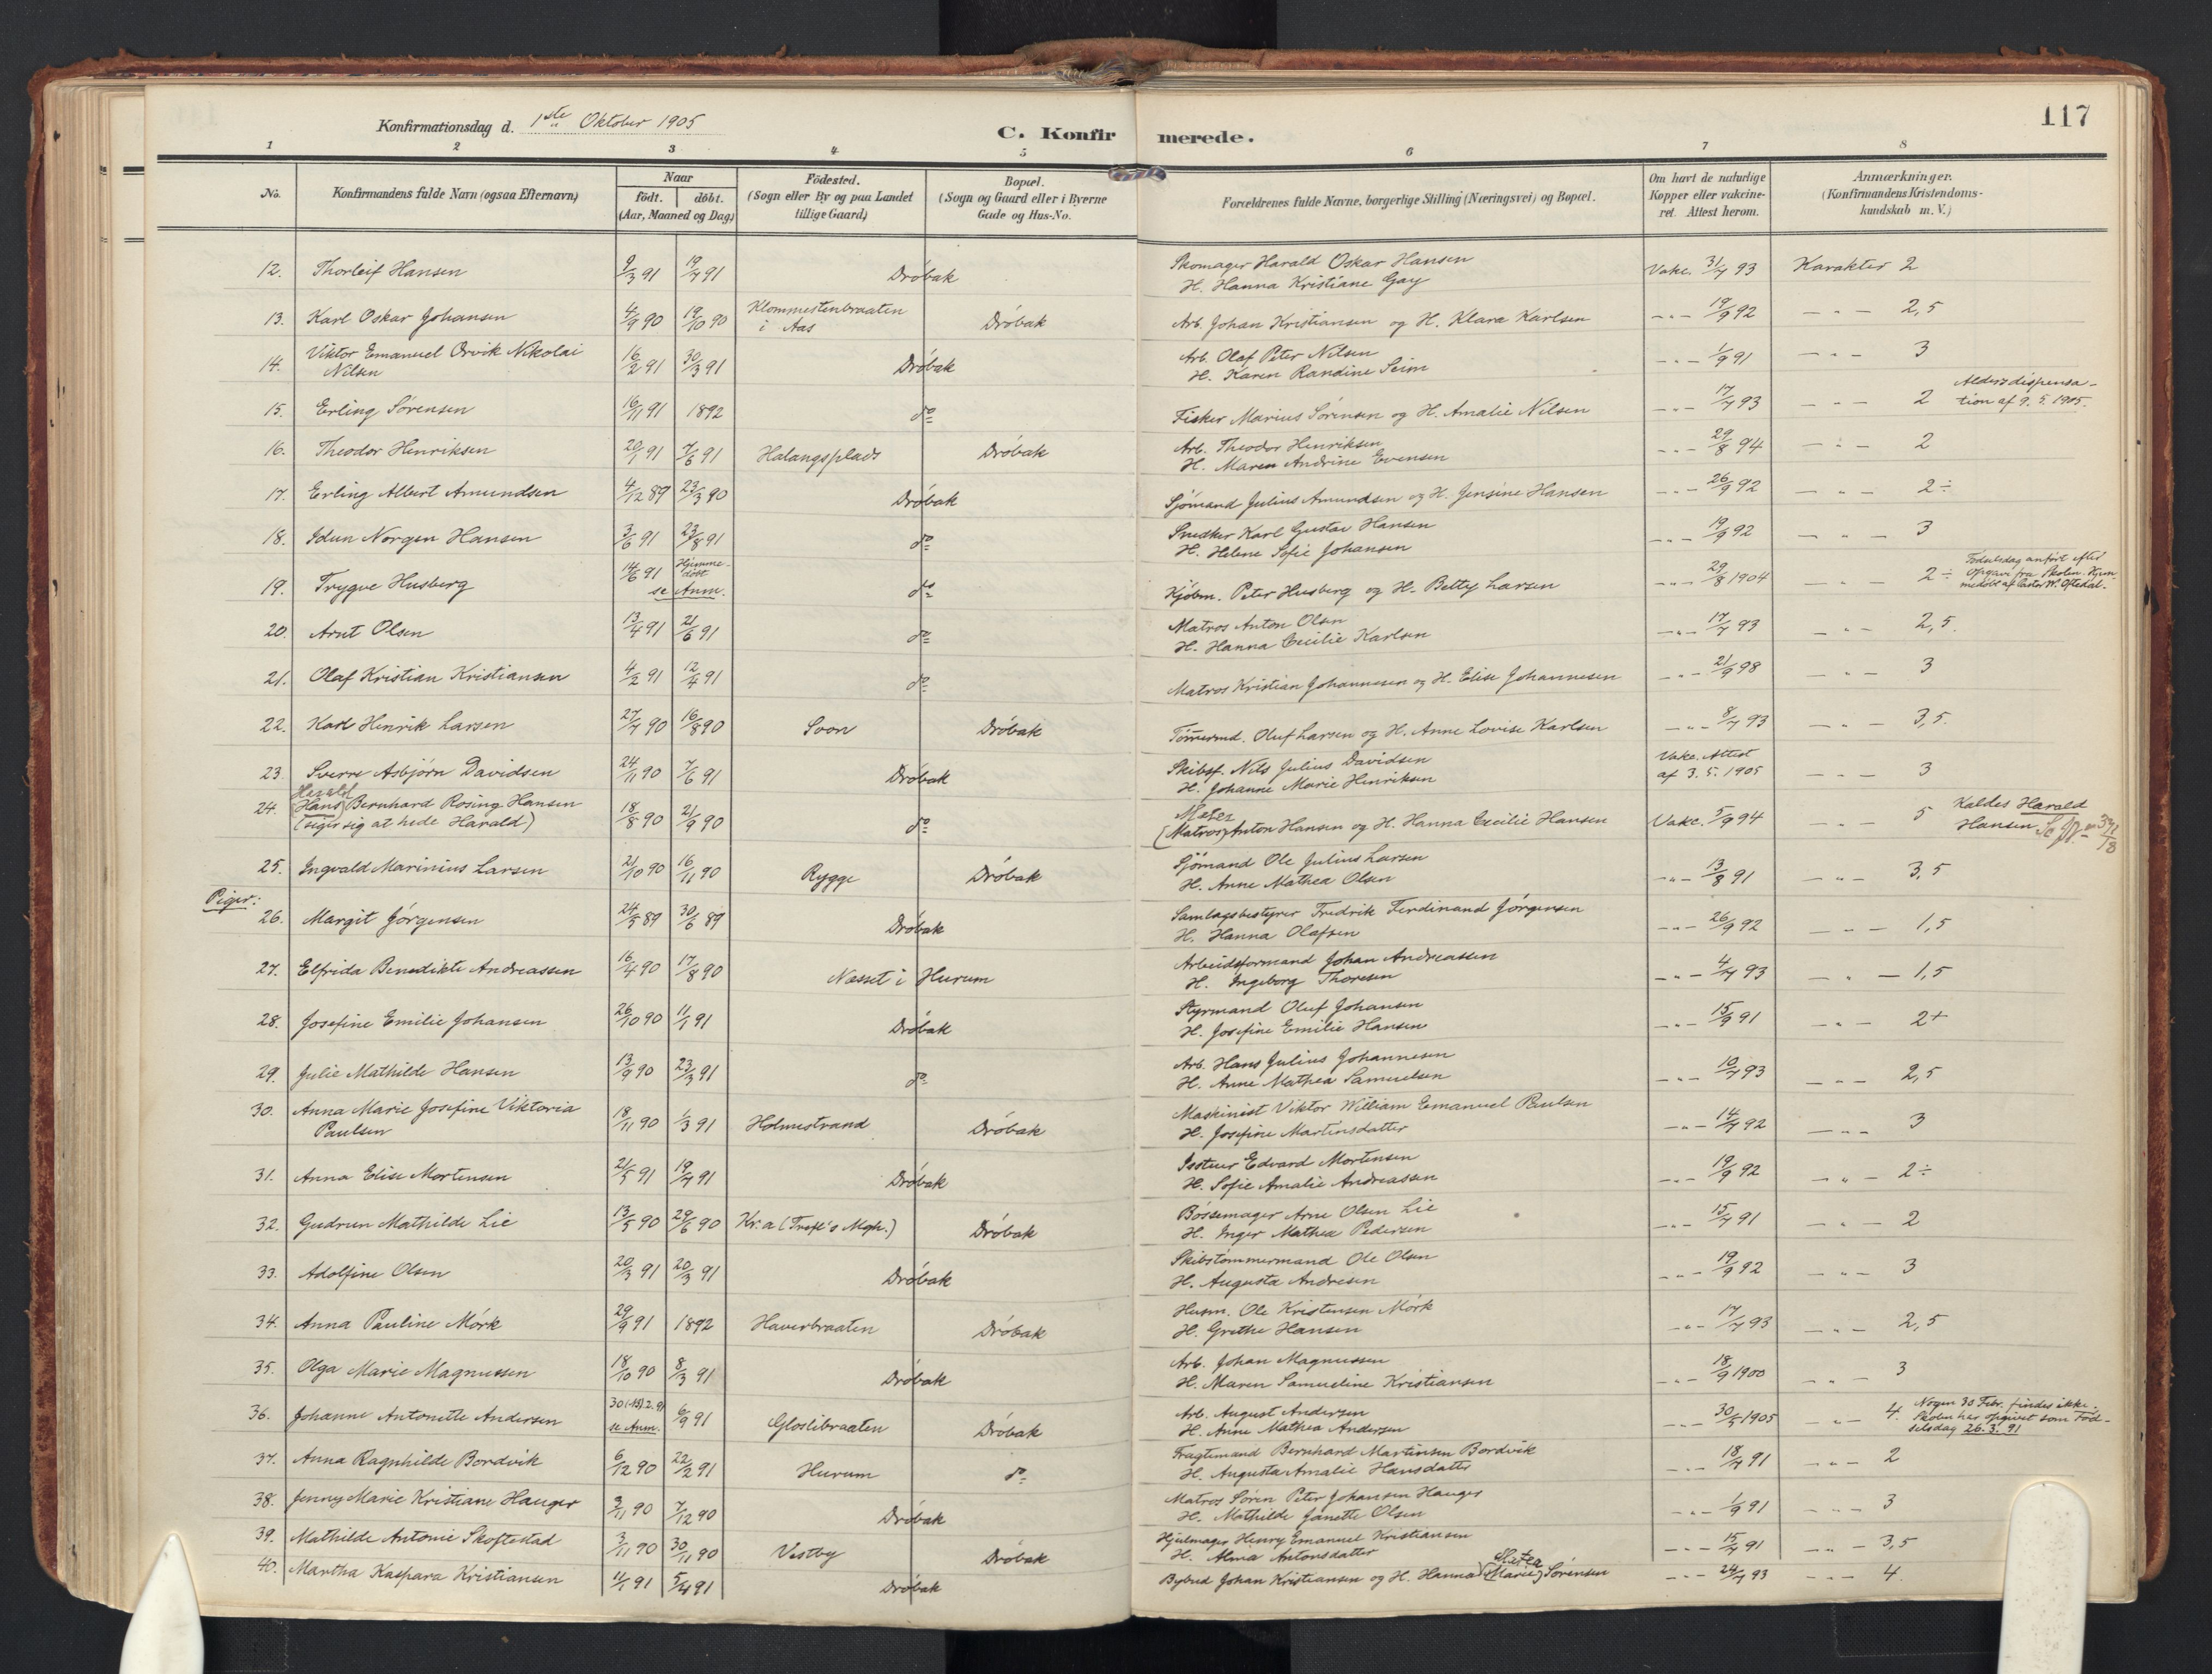 117
Konfirmationsdag d. 1ste Oktober 1905
C. Konfirmerede.
1 2 3 4 5 6 7 8
No. Konfirmandens fulde Navn (ogsaa Efternavn)
Naar født. døbt. (Aar, Maaned og Dag)
Födested. (Sogn eller By og paa Landet tillige Gaard)
Bopæl. (Sogn og Gaard eller i Byerne Gade og Hus-No.
Forældrenes fulde Navne, borgerlige Stilling (Næringsvei) og Bopæl.
Om havt de naturlige Kopper eller vakcineret. Attest herom.
Anmærkninger. (Konfirmandens Kristendomskundskab m. V.)
12. Thorleif Hansen 9/3 91 19/7 91 Dröbak Skomager Harald Oskar Hansen H. Hanna Kristiane Gay Vakc. 31/7 93 Karakter 2
13. Karl Oskar Johansen 4/9 90 19/10 90 Klommestenbraaten i Aas Dröbak Arb. Johan Kristiansen og H. Klara Karlsen -"- 19/9 92 -"- 2,5
14. Viktor Emanuel Orvik Nikolai Nilsen 16/2 91 30/3 91 Dröbak Arb. Olaf Peter Nilsen H. Karen Randine Seim -"- 1/9 91 -"- 3
15. Erling Sörensen 16/11 91 1892 do Fisker Marius Sörensen og H. Amalie Nilsen -"- 17/7 93 -"- 2 Aldersdispensation af 9. 5. 1905.
16. Theodor Henriksen 20/1 91 7/6 91 Halangsplads Dröbak Arb. Theodor Henriksen H. Maren Andrine Evensen -"- 29/8 94 -"- 2
17. Erling Albert Amundsen 4/12 89 23/3 90 Dröbak Sjömand Julius Amundsen og H. Jensine Hansen -"- 26/9 92 -"- 2÷
18. Idun Norgen Hansen 3/6 91 23/8 91 do Snedker Karl Gustav Hansen H. Helene Sofie Johansen -"- 19/9 92 -"- 3
19. Trygve Husberg 14/6 91 Hjemmedöbt se Anm. do Kjöbm. Peter Husberg og H. Betty Larsen -"- 29/8 1904 -"- 2÷ Födselsdag anfört efter Opgave fra Skolen. Hjemmedöbt af Pastor W. Oftedal.
20. Arnt Olsen 13/4 91 21/6 91 do Matros Anton Olsen H. Hanna Cecilie Karlsen -"- 17/7 93 -"- 2,5.
21. Olaf Kristian Kristiansen 4/2 91 12/4 91 do Matros Kristian Johannesen og H. Elise Johannesen -"- 21/9 98 -"- 3
22. Karl Henrik Larsen 27/7 90 16/8 90 Soon Dröbak Tömmermd. Oluf Larsen og H. Anne Lovise Karlsen -"- 8/7 93 -"- 3,5.
23. Sverre Asbjörn Davidsen 24/11 90 7/6 91 Dröbak Skibsf. Nils Julius Davidsen H. Johanne Marie Henriksen Vakc. Attest af 3. 5. 1905 -"- 3
24. Harald (Hans) Bernhard Rosing Hansen (siger sig at hede Harald) 18/8 90 21/9 90 do (Matros) Anton Hansen og H. Hanna Cecilie Hansen Vakc. 5/9 94 -"- 5 Kaldes Harald Hansen
25. Ingvald Marinius Larsen 21/10 90 16/11 90 Rygge Dröbak Sjömand Ole Julius Larsen H. Anne Mathea Olsen -"- 13/8 91 -"- 3,5
Piger:
26. Margit Jörgensen 24/5 89 30/6 89 Dröbak Samlagsbestyrer Fredrik Ferdinand Jörgensen H. Hanna Olafsen -"- 26/9 92 -"- 1,5
27. Elfrida Benedikte Andreassen 16/4 90 17/8 90 Næsset i Hurum Arbeidsformand Johan Andreassen H. Ingeborg Thoresen -"- 4/7 93 -"- 1,5
28. Josefine Emilie Johansen 26/10 90 11/1 91 Dröbak Styrmand Oluf Johansen H. Josefine Emilie Hansen -"- 15/9 91 -"- 2+
29. Julie Mathilde Hansen 13/9 90 23/3 91 do Arb. Hans Julius Johannesen H. Anne Mathea Samuelsen -"- 10/7 93 -"- 2,5
30. Anna Marie Josefine Viktoria Paulsen 18/11 90 1/3 91 Holmestrand Dröbak Maskinist Viktor William Emanuel Paulsen H. Josefine Martinsdatter -"- 14/7 92 -"- 3
31. Anna Elise Mortensen 21/5 91 19/7 91 Dröbak Edvard Mortensen H. Sofie Amalie Andreassen -"- 19/9 92 -"- 2÷
32. Gudrun Mathilde Lie 13/5 90 29/6 90 Kr.a (Trefl's Mgh.) Dröbak Bössemager Arne Olsen Lie H. Inger Mathea Pedersen -"- 15/7 91 -"- 2
33. Adolfine Olsen 20/3 91 20/3 91 Dröbak Skibstömmermand Ole Olsen H. Augusta Andresen -"- 19/9 92 -"- 3
34. Anna Pauline Mörk 29/9 91 1892 Haverbraaten Dröbak Husm. Ole Kristensen Mörk H. Grethe Hansen -"- 17/7 93 -"- 2,5
35. Olga Marie Magnussen 18/10 90 8/3 91 Dröbak Arb. Johan Magnussen H. Maren Samueline Kristiansen -"- 18/9 1900 -"- 3
36. Johanne Antonette Andersen 30 2. 91 se Anm. 6/9 91 Gloslibraaten Dröbak Arb. August Andersen H. Anne Mathea Andersen -"- 30/5 1905 -"- 4. Nogen 30 Febr. findes ikke. Skolen har opgivet som Födselsdag 26. 3. 91
37. Anna Ragnhilde Bordvik 6/12 90 22/2 91 Hurum do Fragtemand Bernhard Martinsen Bordvik H. Augusta Amalie Hansdatter -"- 18/7 91 -"- 2
38. Jenny Marie Kristiane Hauger 3/11 90 7/12 90 Dröbak Matros Sören Peter Johansen Hauger H. Mathilde Janette Olsen -"- 1/9 91 -"- 3
39. Mathilde Antonie Skoftestad 3/11 90 30/11 90 Vestby Dröbak Hjulmager Henry Emanuel Kristiansen H. Alma Antonsdatter -"- 15/7 91 -"- 3,5
40. Martha Kaspara Kristiansen 11/1 91 5/4 91 Dröbak Bybud Johan Kristiansen og H. Hanna (Marie) Sörensen -"- 24/7 93 -"- 4.